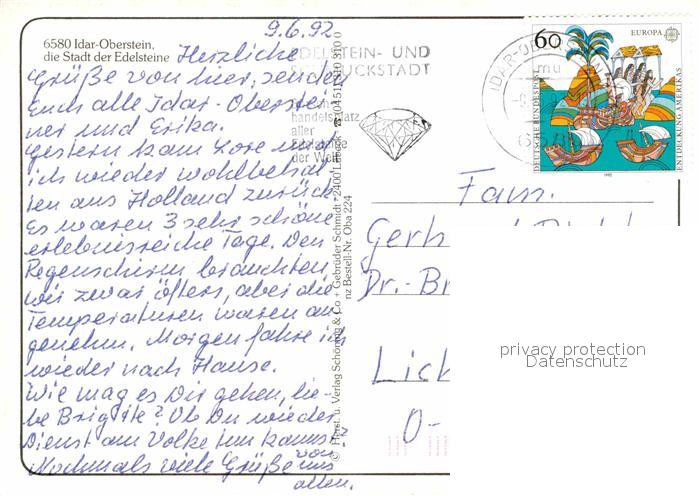 9.6.92
6580 Idar-Oberstein,
die Stadt der Edelsteine
Herzliche
Grüße von hier, senden
Euch alle Idar-Oberstei-
ner und Erika.
Gestern kam Lore und
ich wieder wohlbehal-
ten aus Holland zurück
Es waren 3 sehr schöne
erlebnisreiche Tage. Den
Regenschirm brauchten
wir zwar öfters, aber die
Temperaturen waren an-
genehm. Morgen fahre ich
wieder nach Hause.
Wie mag es Dir gehen, lie-
be Brigitte? Ob Du wieder
Dienst am Volke tun kannst
Nochmals viele Grüße von uns
allen.
EDELSTEIN- UND
SCHMUCKSTADT
handelsplatz
aller
Edelsteine
der Welt
© Horst. u. Verlag Schöning & Co + Gebrüder Schmidt · 2400 Lübeck
nz Bestell-Nr. Oba 224
IDAR-OBERSTEIN
60
EUROPA
DEUTSCHE BUNDESPOST
ENTDECKUNG AMERIKAS
1992
Fam.
Gerh
Dr.-Br
Lich
O-
privacy protection
Datenschutz